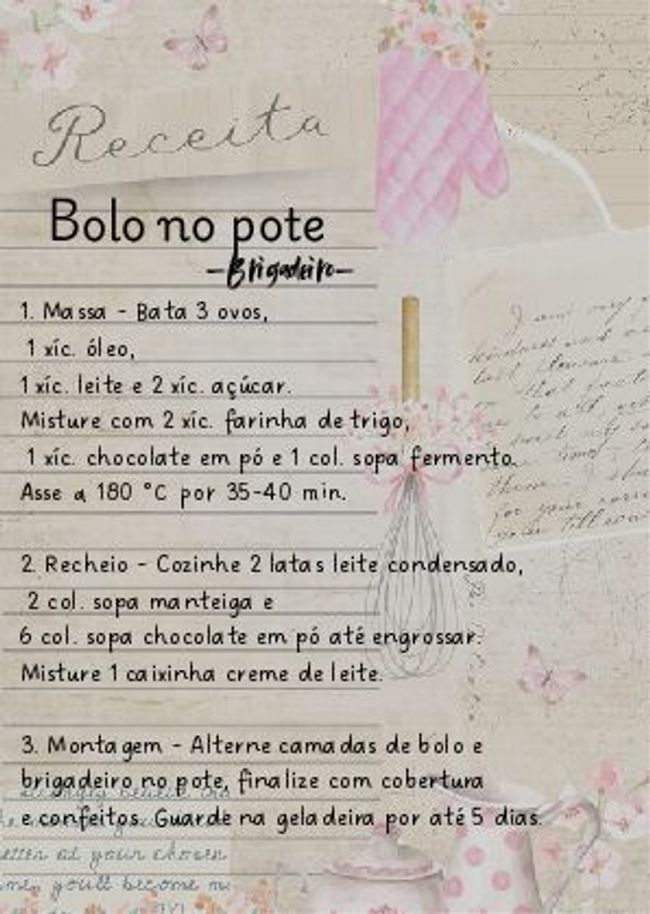 Receita
Bolo no pote
-Brigadeiro-
1. Massa - Bata 3 ovos,
1 xíc. óleo,
1 xíc. leite e 2 xíc. açúcar.
Misture com 2 xíc. farinha de trigo,
1 xíc. chocolate em pó e 1 col. sopa fermento.
Asse a 180 °C por 35-40 min.
2. Recheio - Cozinhe 2 latas leite condensado,
2 col. sopa manteiga e
6 col. sopa chocolate em pó até engrossar.
Misture 1 caixinha creme de leite.
3. Montagem - Alterne camadas de bolo e
brigadeiro no pote, finalize com cobertura
e confeitos. Guarde na geladeira por até 5 dias.
at your chosen
you'll become m